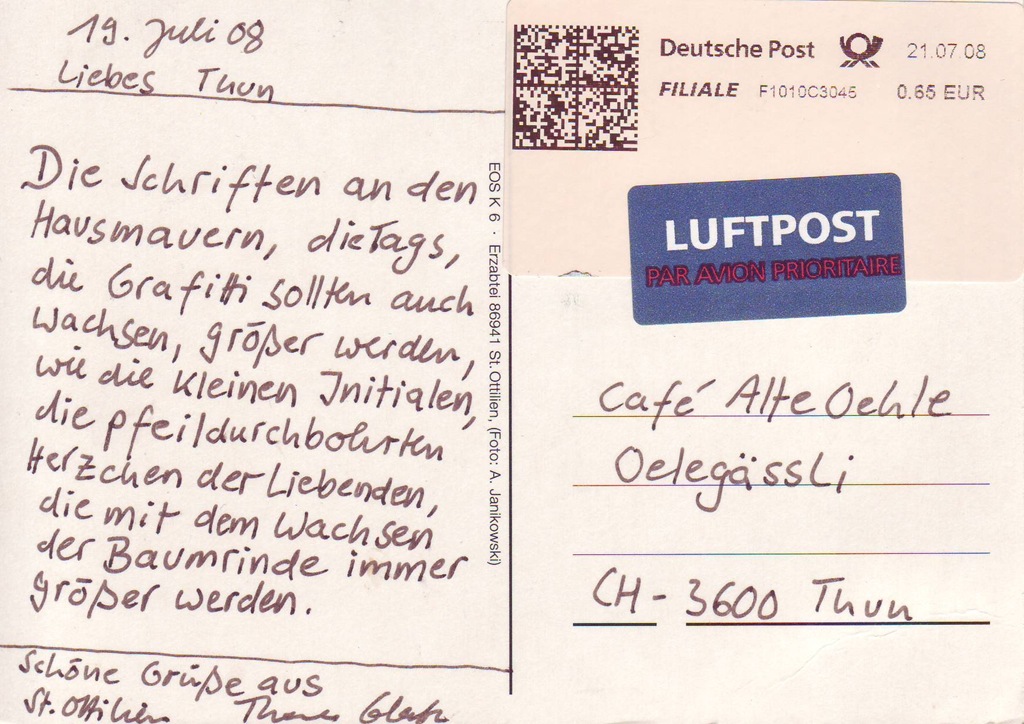 19. Juli 08
Liebes Thun
Die Schriften an den
Hausmauern, die Tags,
die Grafitti sollten auch
wachsen, größer werden,
wie die kleinen Initialen,
die pfeildurchbohrten
Herzchen der Liebenden,
die mit dem Wachsen
der Baumrinde immer
größer werden.
Schöne Grüße aus
St. Ottilien
EOS K 6 · Erzabtei 86941 St. Ottilien, (Foto: A. Janikowski)
Deutsche Post 21.07.08
FILIALE F1010C3045 0.65 EUR
LUFTPOST
PAR AVION PRIORITAIRE
Café Alte Oehle
Oelegässli
CH - 3600 Thun